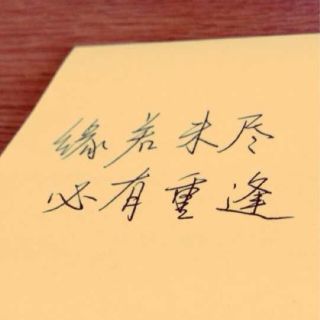 缘若未尽
必有重逢